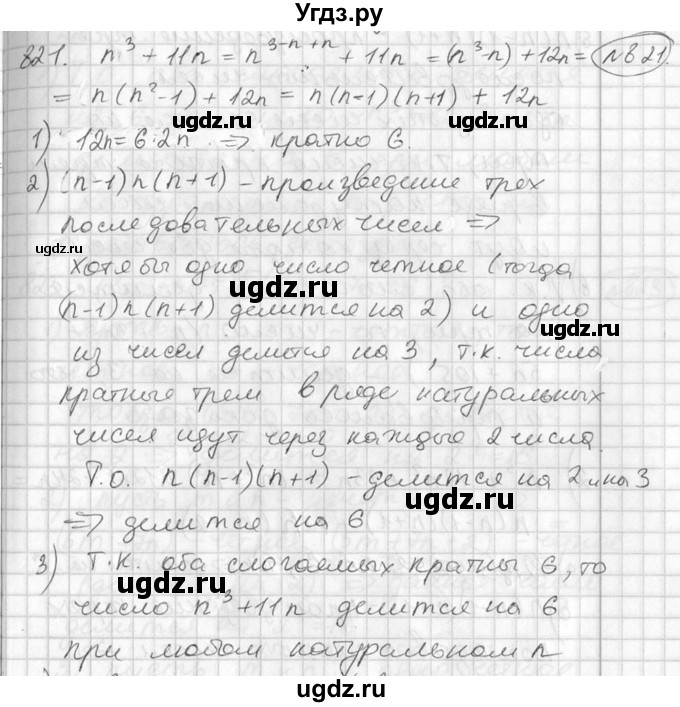 Угдз.ру
821. n³ + 11n = n³⁻ⁿ⁺ⁿ + 11n = (n³-n) + 12n = №821.
= n(n²-1) + 12n = n(n-1)(n+1) + 12n
1) 12n = 6·2n ⇒ кратно 6.
2) (n-1)n(n+1) - произведение трех
последовательных чисел ⇒
угдз.ру
хотя бы одно число четное (тогда
ugdz.ru
(n-1)n(n+1) делится на 2) и одно
ugdz.ru
из чисел делится на 3, т.к. числа
кратные трем в ряде натуральных
ugdz.ru
чисел идут через каждые 2 числа.
Т.о. n(n-1)(n+1) - делится на 2 и на 3
ugdz.ru
⇒ делится на 6
3) Т.к. оба слогаемых кратны 6, то
ugdz.ru
число n³+11n делится на 6
ugdz.ru
при любом натуральном n
ugdz.ru